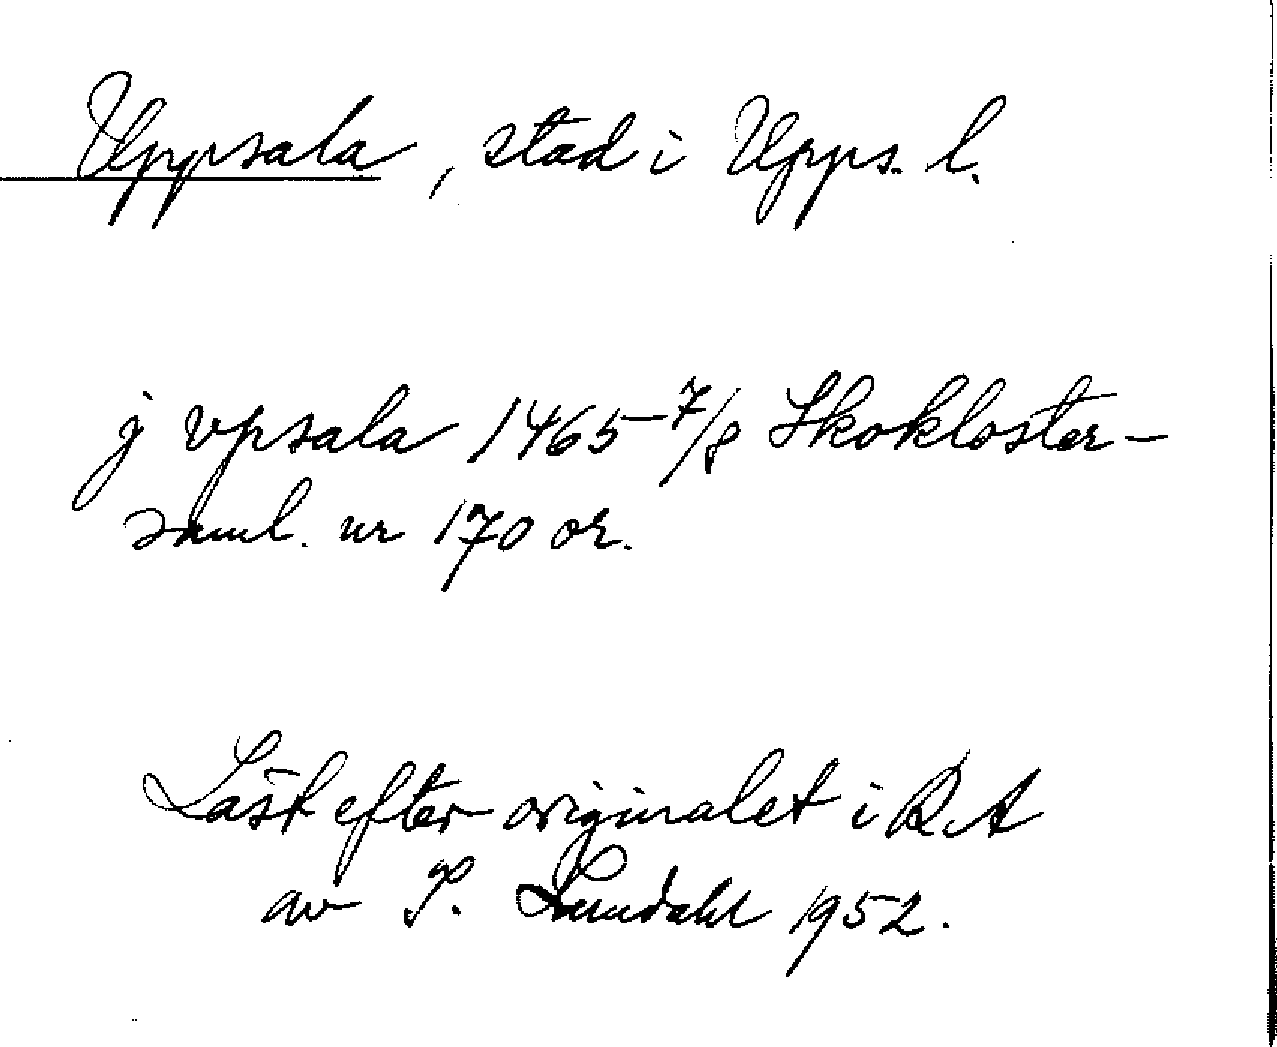 Uppsala, stad i Upps. l.
j vpsala 1465 – 7/8 Skokloster-
saml. nr 170 or.
Läst efter originalet i RA
av P. Lundahl 1952.